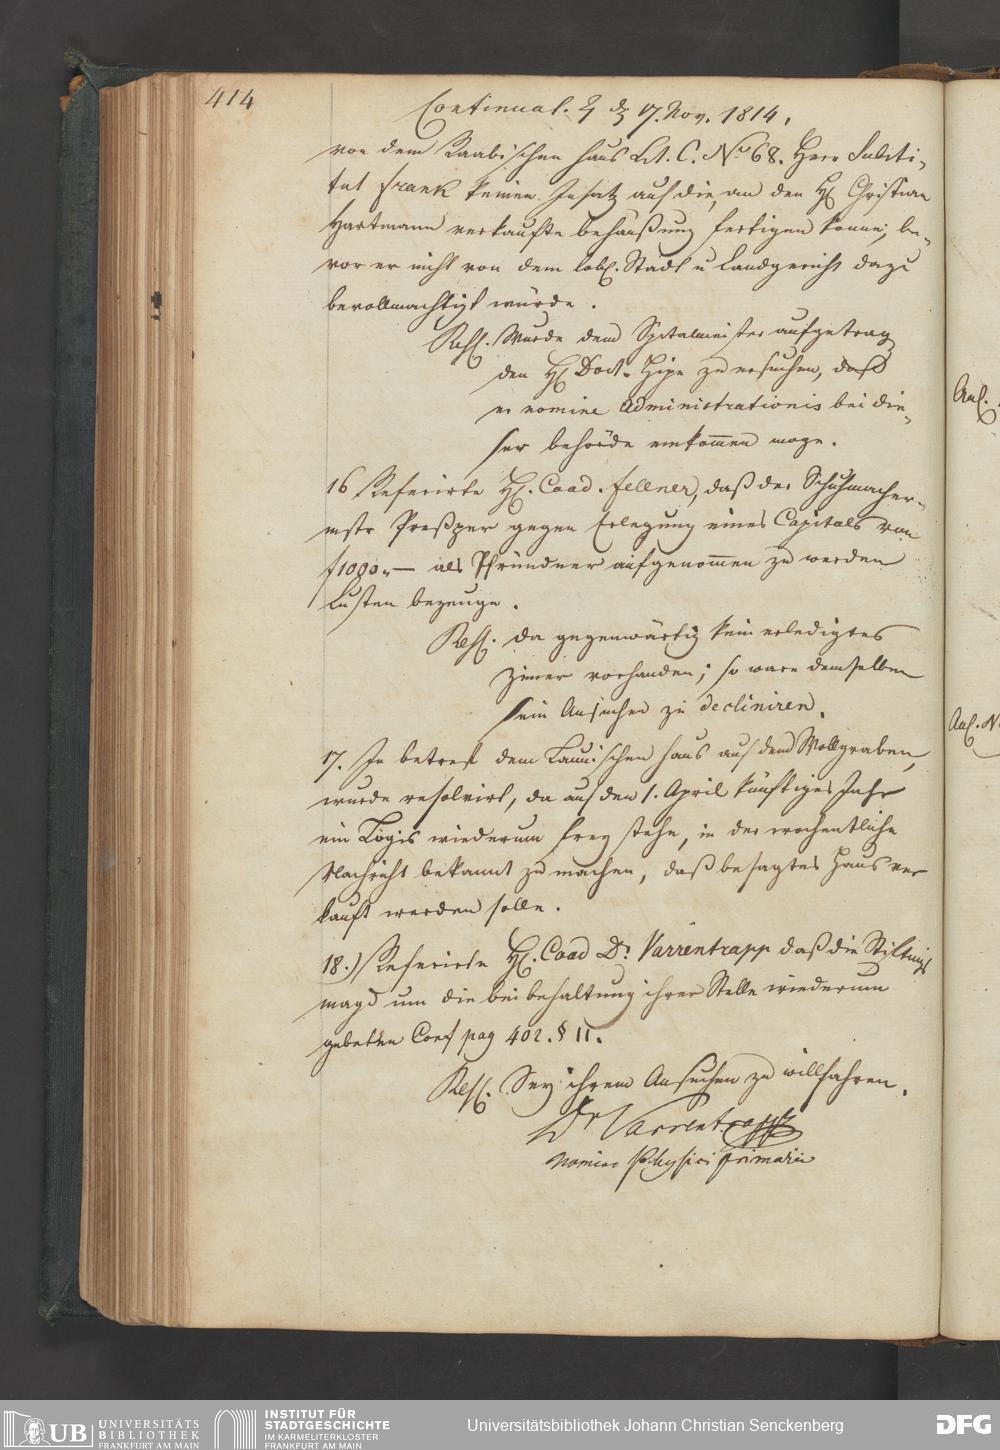 414
Continuat. ♃ d 17. Nov. 1814.
von dem Raabischen Haus Lit. C. No 68. Herr Substi-
tut Frank keinen Insatz auf die, an den H. Christian
Hartmann verkaufte Behaußung fertigen könne, be-
vor er nicht von dem löbl. Stadt u Landgericht dazu
bevollmächtigt würde.
Resl. Wurde dem Spitalmeister aufgetrag
den H Doct. zu ersuchen, daß
er nomine Administrationis bei die-
ser Behörde einkom̅en möge.
16 Referirte H. Coad. Fellner, daß der Schuhmacher-
mstr Preßper gegen Erlegung eines Capitals von
f1000„— als Pfründner aufgenom̅en zu werden
Lusten bezeuge.
Resl. Da gegenwärtig kein erledigtes
Zimer vorhanden; so wäre demselben
sein Ansuchen zu decliniren.
17. In betreff dem Haus auf dem Wollgraben,
wurde resolvirt, da auf den 1. April künftiges Jahr
ein Logis wiederum frey stehe, in der wochentliche
Nachricht bekannt zu machen, daß besagtes Haus ver
kauft werden solle.
18.) Referirte H. Coad Dr. Varrentrapp daß die Stiftungs
magd um die beibehaltung ihrer Stelle wiederum
gebeten Conf pag 402. § 11.
Resl. Sey ihrem Ansuchen zu willfahren.
Dr Varrentrapp
nomine Physici Primarii
Anl.
Anl. N
UB UNIVERSITÄTS
BIBLIOTHEK
FRANKFURT AM MAIN
INSTITUT FÜR
STADTGESCHICHTE
IM KARMELITERKLOSTER
FRANKFURT AM MAIN
Universitätsbibliothek Johann Christian Senckenberg
DFG